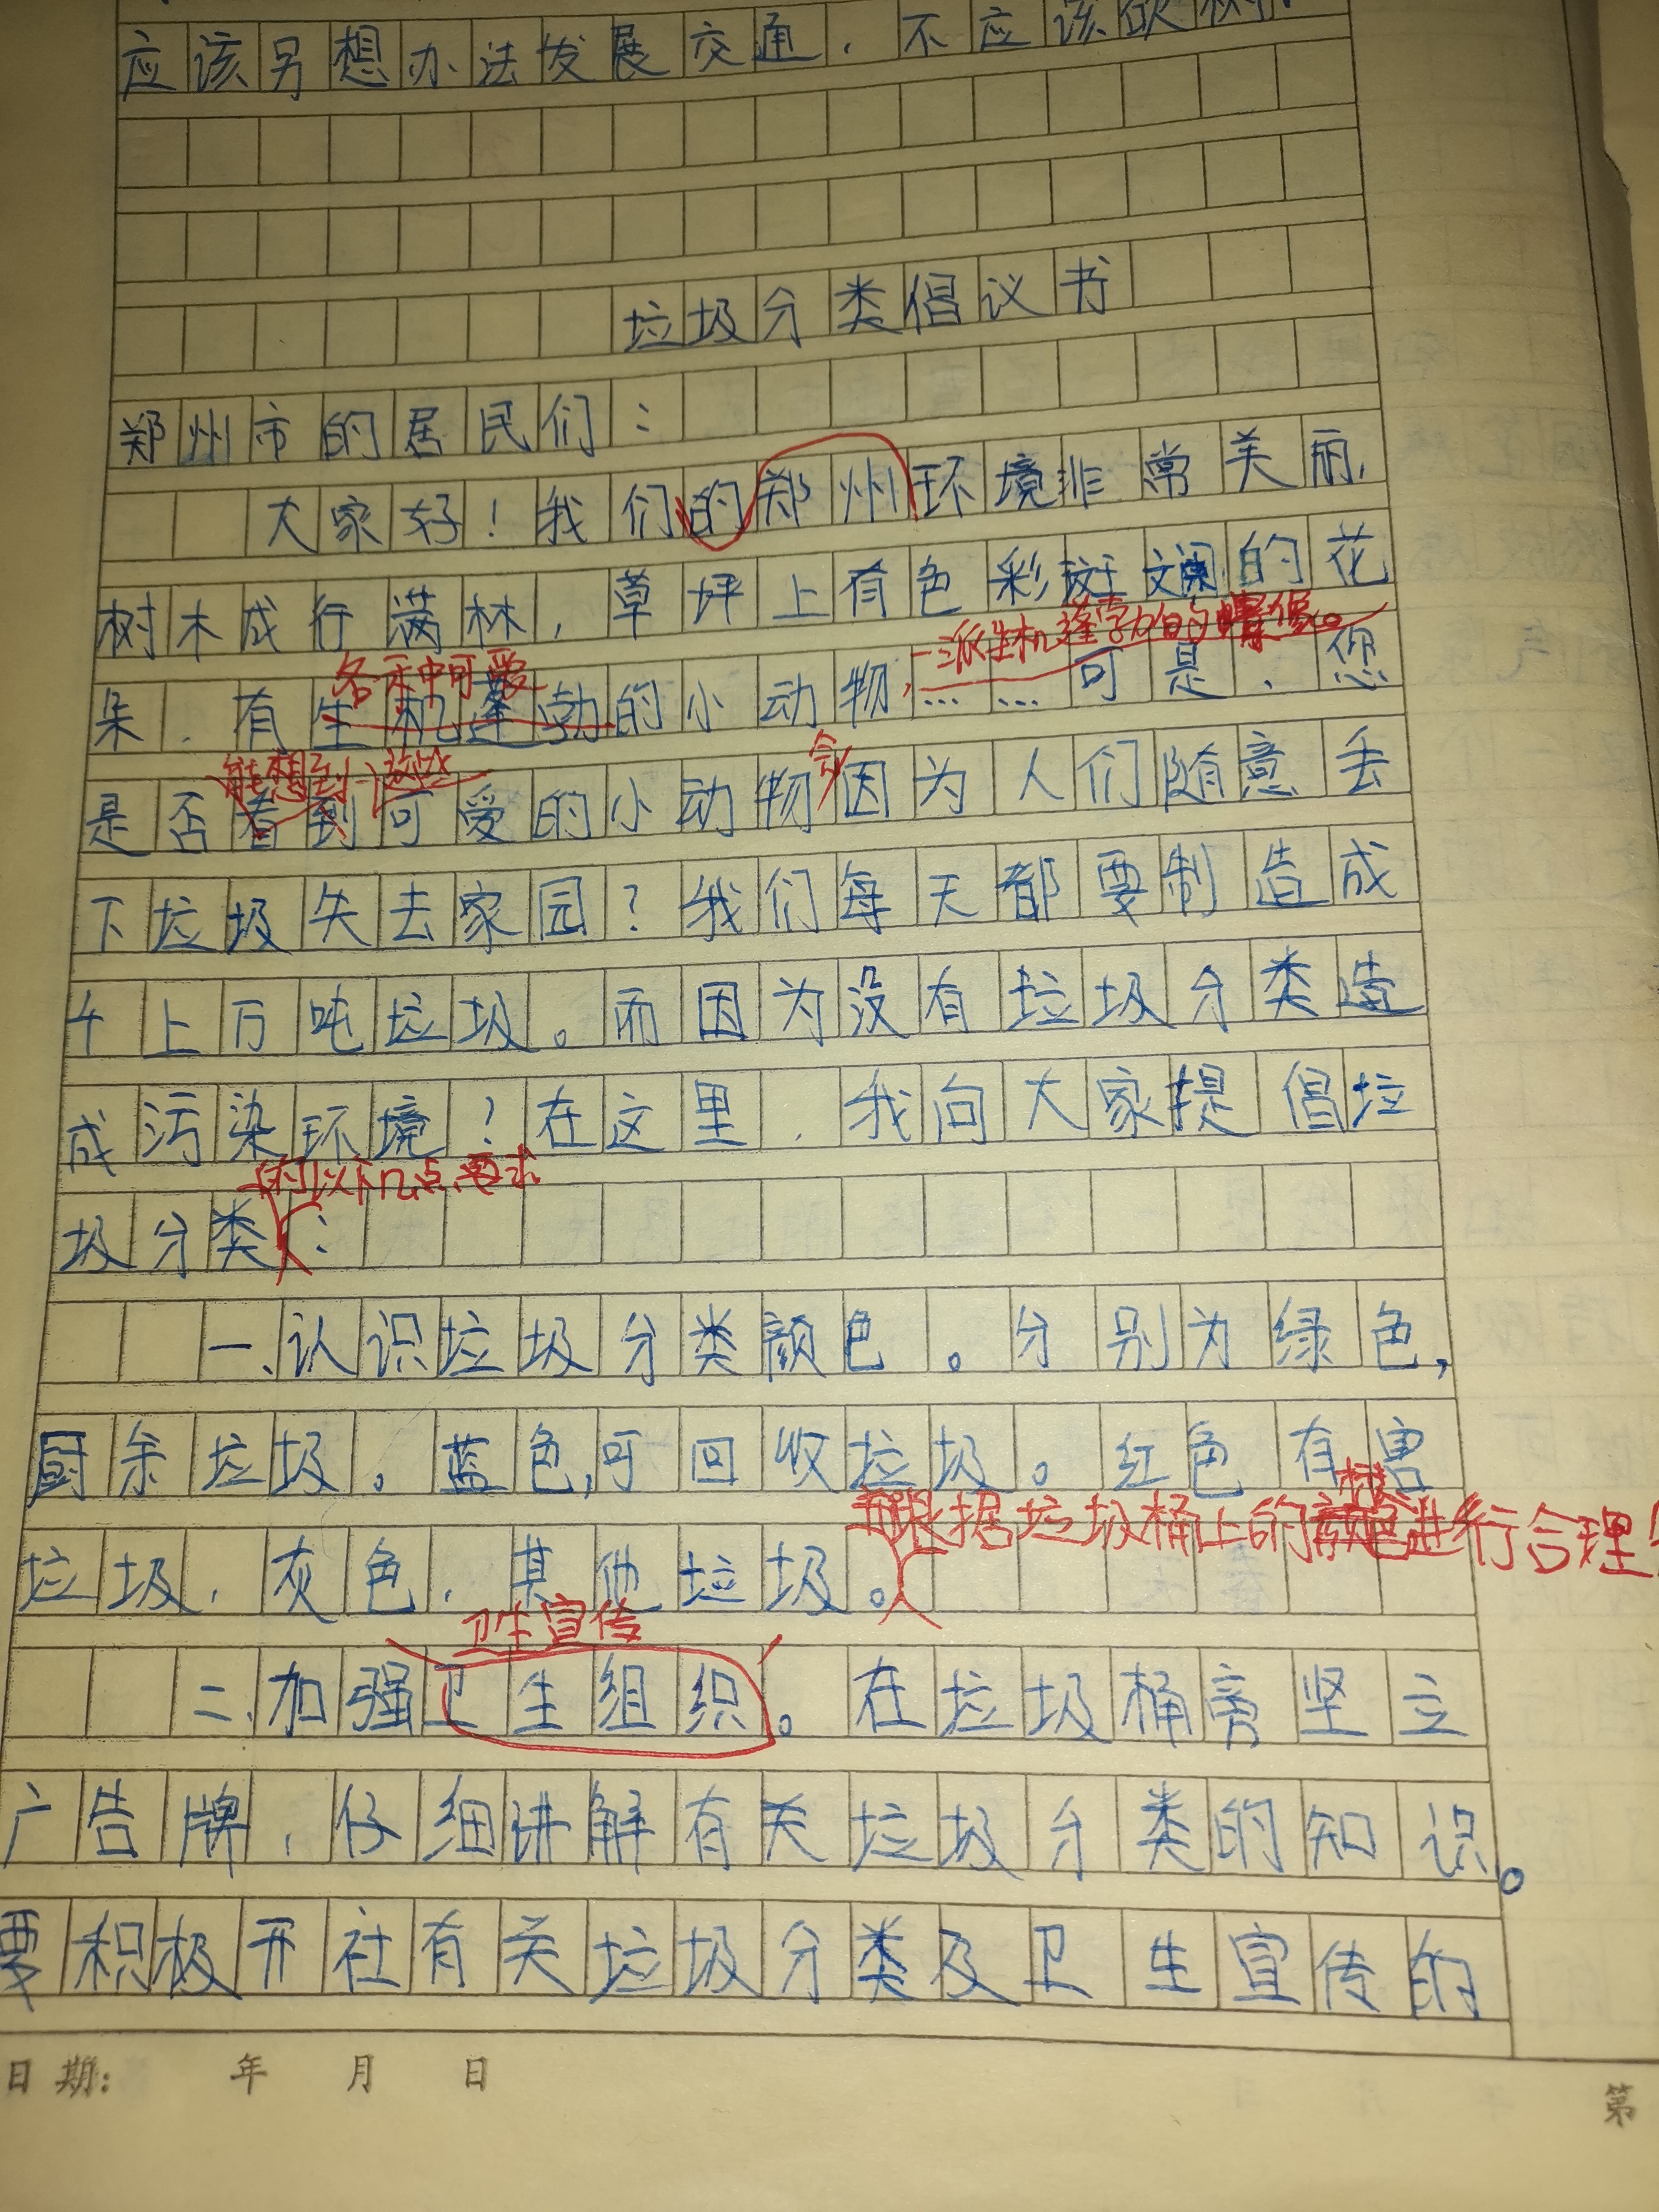 应该另想办法发展交通，不应该砍树。
垃圾分类倡议书
郑州市的居民们：
大家好！我们的郑州环境非常美丽，
树木成行满林，草坪上有色彩斑斓的花
一派生机蓬勃的景象。
各种可爱
朵，有生机蓬勃的小动物，……可是，您
能想到这些
会
是否看到可爱的小动物因为人们随意丢
下垃圾失去家园？我们每天都要制造成
千上万吨垃圾。而因为没有垃圾分类造
成污染环境？在这里，我向大家提倡垃
的以下几点要求
圾分类：
一、认识垃圾分类颜色。分别为绿色，
厨余垃圾。蓝色，可回收垃圾。红色有害
根据垃圾桶上的颜色进行合理
垃圾，灰色，其他垃圾。
卫生宣传
二、加强卫生组织。在垃圾桶旁坚立
广告牌，仔细讲解有关垃圾分类的知识。
要积极开社有关垃圾分类及卫生宣传的
日期： 年 月 日
第